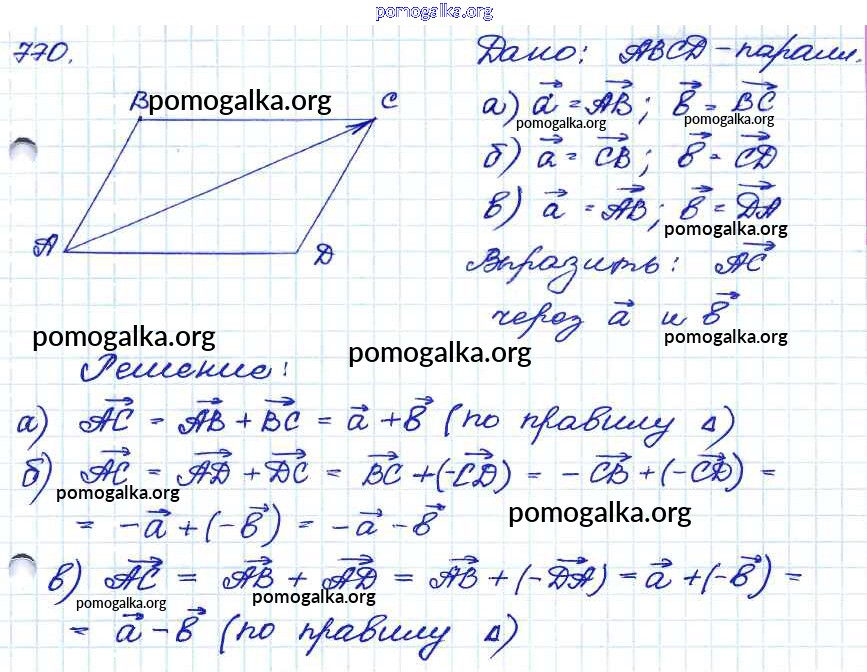 pomogalka.org
770.
Дано: ABCD - паралл.
B pomogalka.org C
A D
а) a⃗ = AB⃗; b⃗ = BC⃗
pomogalka.org pomogalka.org
б) a⃗ = CB⃗; b⃗ = CD⃗
в) a⃗ = AB⃗; b⃗ = DA⃗
pomogalka.org
Выразить: AC⃗
через a⃗ и b⃗
pomogalka.org pomogalka.org
pomogalka.org
Решение:
а) AC⃗ = AB⃗ + BC⃗ = a⃗ + b⃗ (по правилу Δ)
б) AC⃗ = AD⃗ + DC⃗ = BC⃗ + (-CD⃗) = - CB⃗ + (-CD⃗) =
pomogalka.org
= - a⃗ + (- b⃗) = - a⃗ - b⃗
pomogalka.org
в) AC⃗ = AB⃗ + AD⃗ = AB⃗ + (-DA⃗) = a⃗ + (- b⃗) =
pomogalka.org pomogalka.org
= a⃗ - b⃗ (по правилу Δ)